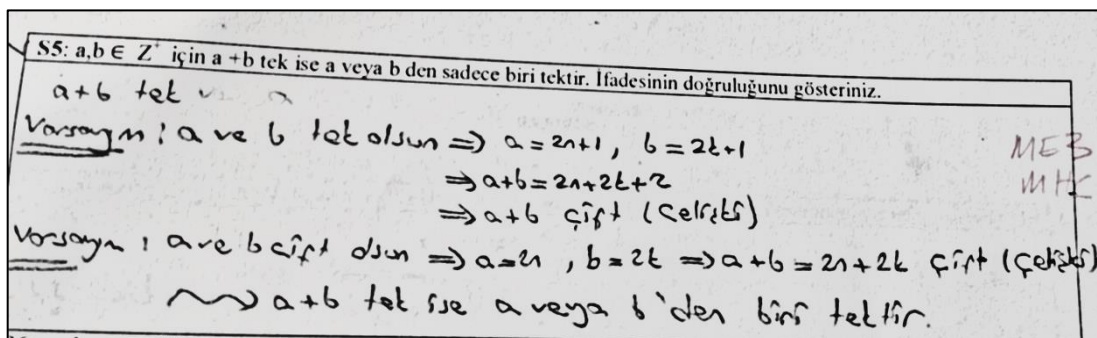 S5: a,b ∈ Z⁺ için a +b tek ise a veya b den sadece biri tektir. İfadesinin doğruluğunu gösteriniz.
a+b tek
Varsayın : a ve b tek olsun ⇒ a = 2n+1 , b = 2t+1
MEB
⇒ a+b = 2n+2t+2
⇒ a+b çift (Çelişki)
Varsayın : a ve b çift olsun ⇒ a=2n , b=2t ⇒ a+b = 2n+2t çift (Çelişki)
a+b tek ise a veya b'den biri tektir.